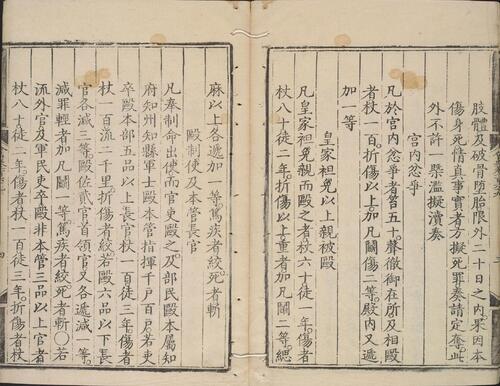 肢體及破骨墮胎限外二十日之內果因本
傷身死情真事實者方擬死罪奏請定奪此
外不許一槩濫擬瀆奏
宮內忿爭
凡於宮內忿爭者笞五十聲徹御在所及相毆
者杖一百折傷以上加凡鬬傷二等殿內又遞
加一等
皇家袒免以上親被毆
凡皇家袒免親而毆之者杖六十徒一年傷者
杖八十徒二年折傷以上重者加凡鬬二等緦
麻以上各遞加一等篤疾者絞死者斬
毆制使及本管長官
凡奉制命出使而官吏毆之及部民毆本屬知
府知州知縣軍士毆本管指揮千戶百戶若吏
卒毆本部五品以上長官杖一百徒三年傷者
杖一百流二千里折傷者絞若毆六品以下長
官各減三等毆佐貳官首領官又各遞減一等
減罪輕者加凡鬬一等篤疾者絞死者斬○若
流外官及軍民吏卒毆非本管三品以上官者
杖八十徒二年傷者杖一百徒三年折傷者杖